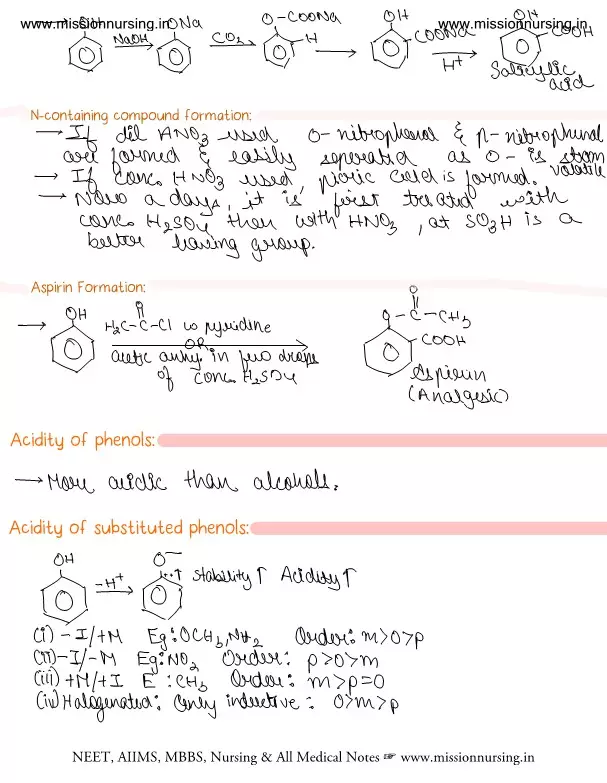 www.missionnursing.in www.missionnursing.in
OH ONa O-COONa OH OH
NaOH CO₂ H COONa H⁺ COOH
Salicylic acid
N-containing compound formation:
→ If dil HNO₃ used o-nitrophenol & p-nitrophenol
are formed & easily seperated as o- is steam volatile
→ If conc. HNO₃ used, picric acid is formed.
→ Now a days, it is first treated with
conc. H₂SO₄ then with HNO₃, at SO₃H is a
better leaving group.
Aspirin Formation:
→ OH H₂C-C-Cl in pyridine O-C-CH₃
O O
OR COOH
acetic anhy. in few drops
of conc. H₂SO₄
Aspirin
(Analgesic)
Acidity of phenols:
→ More acidic than alcohols.
Acidity of substituted phenols:
OH -H⁺ O⁻ Stability↑ Acidity↑
(i) -I/+M Eg: OCH₃, NH₂ Order: m>o>p
(ii) -I/-M Eg: NO₂ Order: p>o>m
(iii) +M/+I E : CH₃ Order: m>p=o
(iv) Halogenated: Only inductive: o>m>p
NEET, AIIMS, MBBS, Nursing & All Medical Notes ☞ www.missionnursing.in